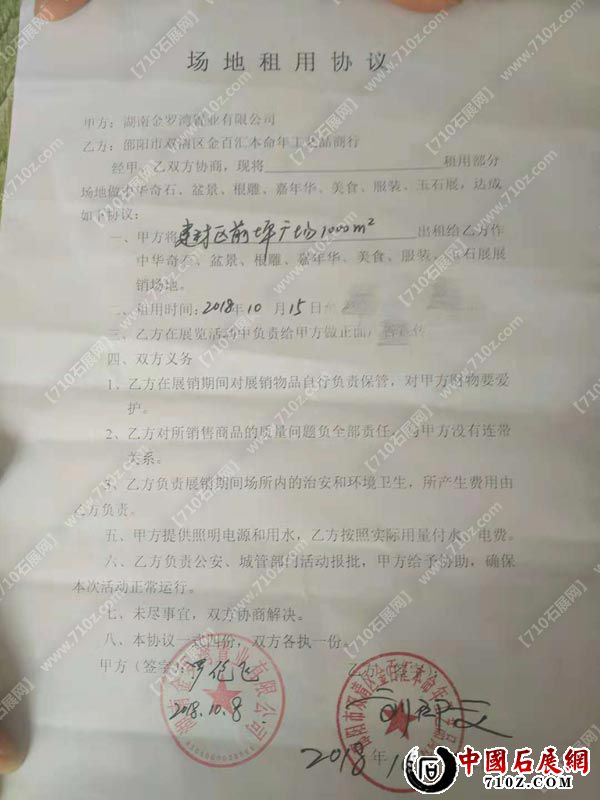 场地租用协议
甲方：湖南金罗湾置业有限公司
乙方：邵阳市双清区金百汇本命年工艺品商行
经甲、乙双方协商，现将 租用部分
场地做中华奇石、盆景、根雕、嘉年华、美食、服装、玉石展，达成
如下协议：
一、甲方将 前坪广场1000m² 出租给乙方作
中华奇石、盆景、根雕、嘉年华、美食、服装、玉石展展
销场地。
二、租用时间：2018年10月15日
三、乙方在展览活动中负责给甲方做正面广告宣传
四、双方义务
1、乙方在展销期间对展销物品自行负责保管，对甲方财物要爱
护。
2、乙方对所销售商品的质量问题负全部责任，与甲方没有连带
关系。
3、乙方负责展销期间场所内的治安和环境卫生，所产生费用由
乙方负责。
五、甲方提供照明电源和用水，乙方按照实际用量付水、电费。
六、乙方负责公安、城管部门活动报批，甲方给予协助，确保
本次活动正常运行。
七、未尽事宜，双方协商解决。
八、本协议一式四份，双方各执一份。
甲方（签字）：
2018.10.8
2018年
中國石展網
710Z.COM
【710石展网】
www.710z.com